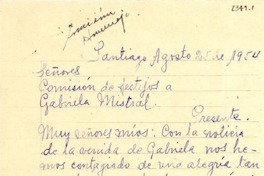 2343.1
Comisión
Santiago Agosto 25 de 1954
Señores
Comisión de festejos a
Gabriela Mistral.
Presente.
Muy señores míos: Con la noticia
de la venida de Gabriela nos he-
mos contagiado de una alegría tan